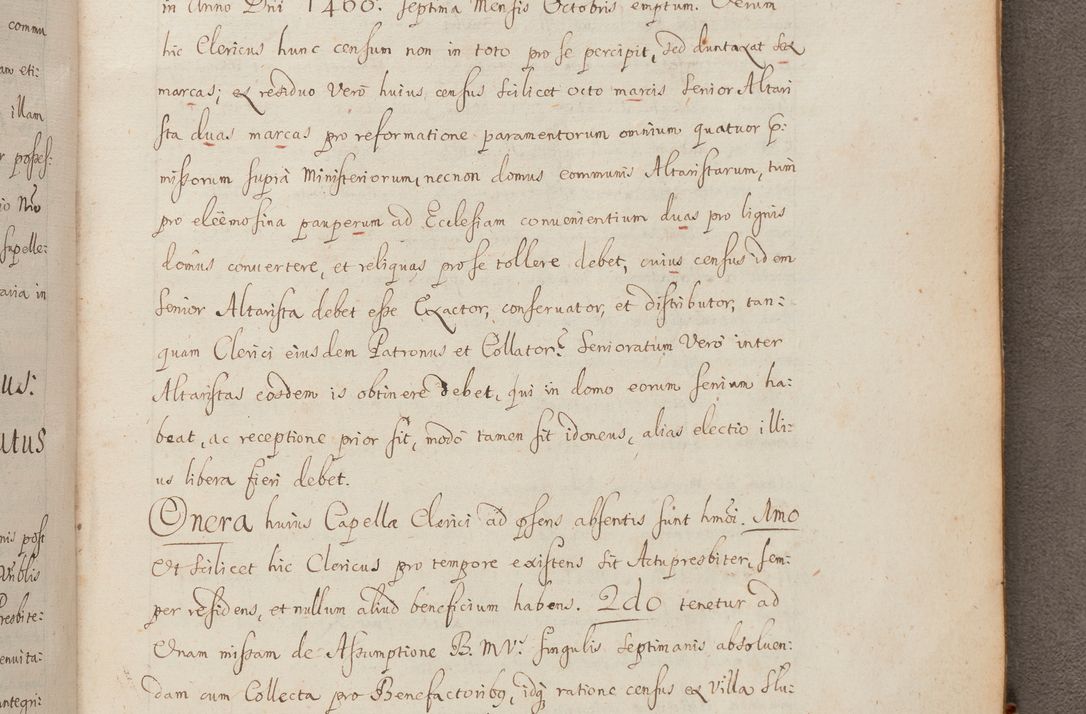 commu
am eti:
illam
r posses:
io Nro
supelle:
aria in
us:
utus
nis post
Vnblis
Presbite:
enuita:
integri:
in Anno Dni 1460. septima Mensis Octobris emptum. Verum
hic Clericus hunc censum non in toto pro se percipit, sed duntaxat sex
marcas; ex residuo Verò huius census scilicet octo marcis Senior Altari
sta duas marcas pro reformatione paramentorum omnium quatuor p:
missorum supra Ministeriorum, necnon domus communis Altaristarum, tum
pro eleëmosina pauperum ad Ecclesiam convenientium duas pro lignis
domûs convertere, et reliquas pro se tollere debet, cuius census idem
Senior Altarista debet esse Exactor, conservator, et distributor, tan:
quam Clerici eiusdem Patronus et Collator. Senioratum Verò inter
Altaristas eosdem is obtinere debet, qui in domo eorum senium ha:
beat, ac receptione prior sit, modò tamen sit idoneus, alias electio illi:
us libera fieri debet.
Onera huius Capellæ Clerici ad psens absentis sunt hmõi. Imo
Ut scilicet hic Clericus pro tempore existens sit Actupresbiter, sem:
per residens, et nullum aliud beneficium habens. 2do tenetur ad
Unam missam de Assumptione B. M V. singulis septimanis absolven:
dam cum Collecta pro Benefactoribq, idq ratione census ex Villa Slu: